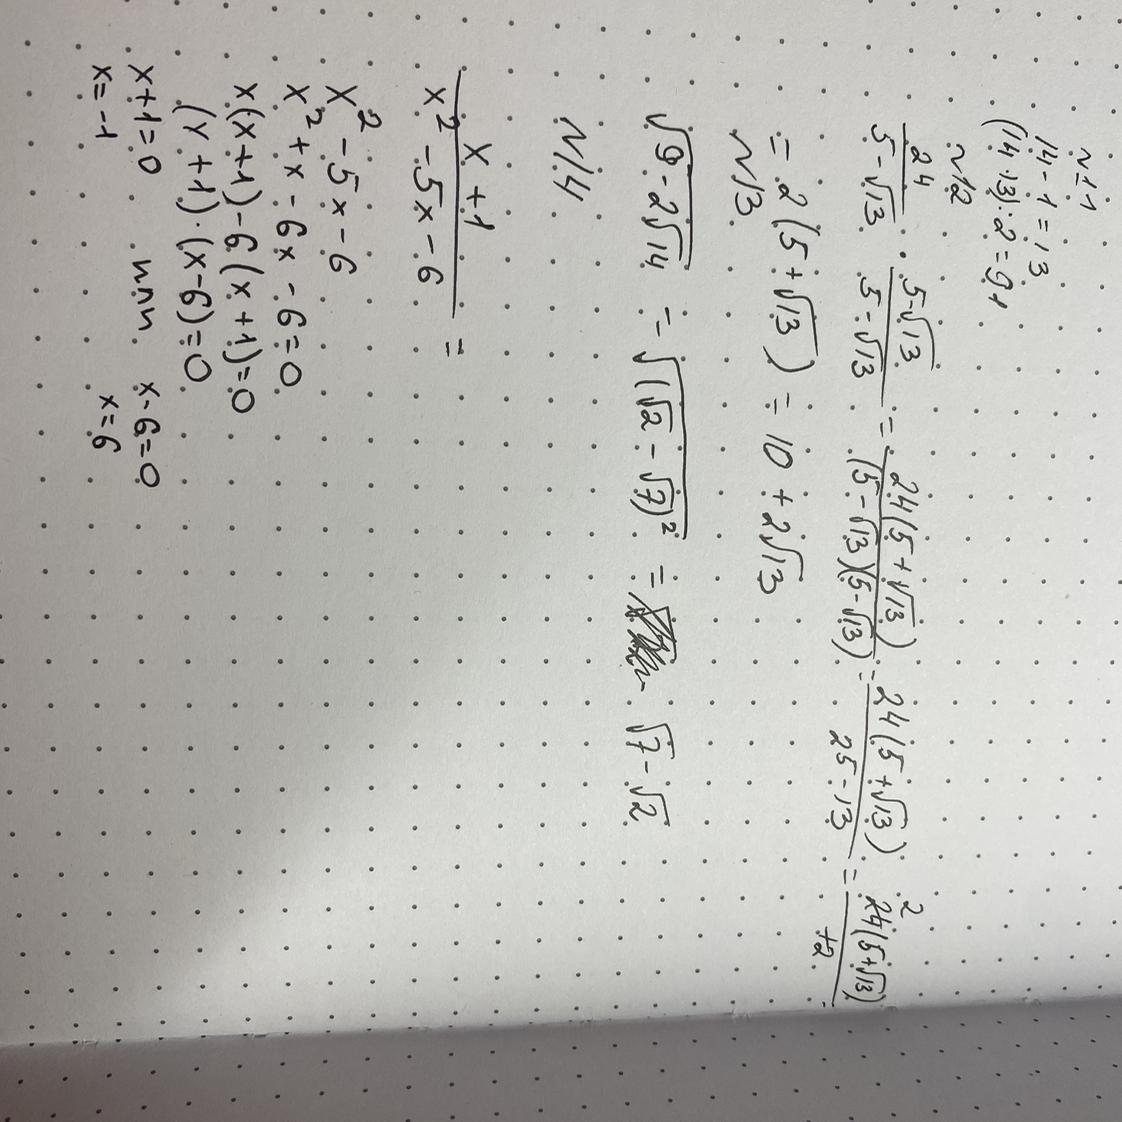 №11
14 - 1 = 13
(14·13):2=91
№12
24/(5-√13) · (5-√13)/(5-√13) = 24(5+√13)/((5-√13)(5-√13)) = 24(5+√13)/(25-13) = 2 24(5+√13)/12 =
= 2(5+√13) = 10 + 2√13
№13
√(9-2√14) = √((√2-√7)²) = √7-√2
№14
(x+1)/(x²-5x-6) =
x²-5x-6
x²+x-6x-6=0
x(x+1)-6(x+1)=0
(x+1)·(x-6)=0
x+1=0 или x-6=0
x=-1 x=6